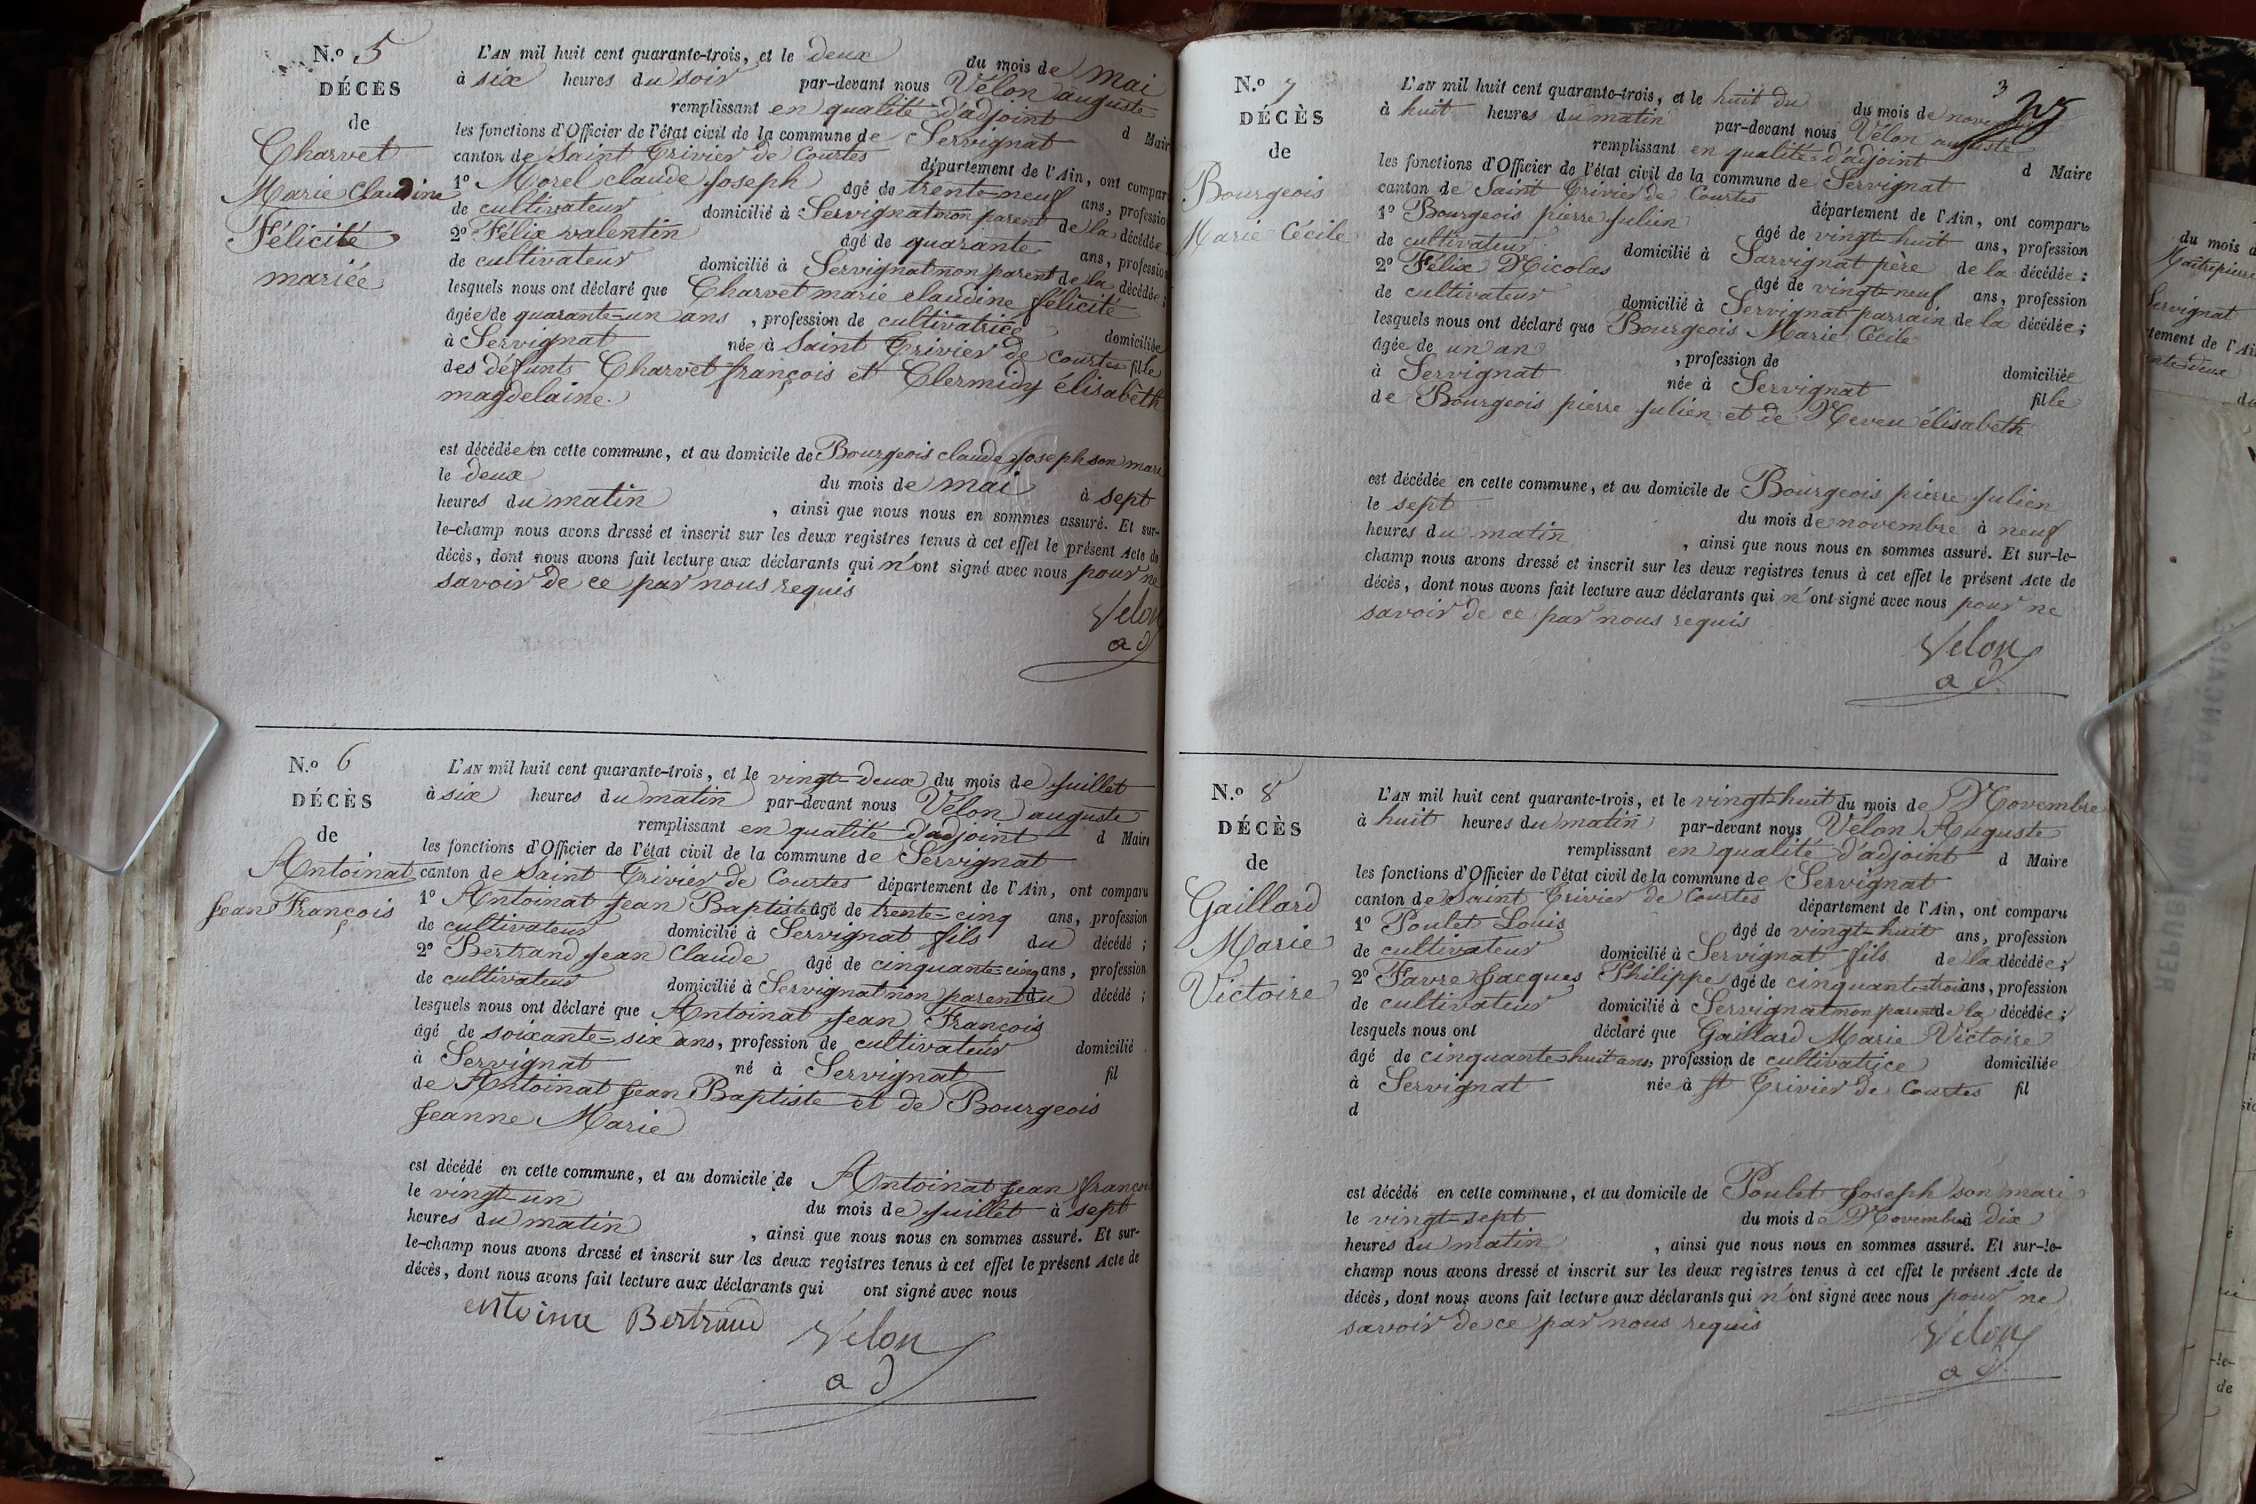 N.o 5
DÉCÈS
de
Charvet
Marie Claudine
Félicité
mariée
L'AN mil huit cent quarante-trois, et le deux du mois de mai
à six heures du soir par-devant nous Vélon auguste
remplissant en qualité d'adjoint d Maire
les fonctions d'Officier de l'état civil de la commune de Servignat
canton de Saint Trivier de Courtes département de l'Ain, ont compar
1o Morel claude joseph âgé de trente-neuf ans, professio
de cultivateur domicilié à Servignat non parent de la décédée
2o Félix valentin âgé de quarante ans, profession
de cultivateur domicilié à Servignat non parent de la décédée;
lesquels nous ont déclaré que Charvet marie claudine félicité
âgée de quarante-un ans, profession de cultivatrice domiciliée
à Servignat née à Saint Trivier de Courtes fille
des défunts Charvet françois et Clermidy élisabeth
magdelaine.
est décédée en cette commune, et au domicile de Bourgeois claude joseph son mari
le deux du mois de mai à sept
heures du matin, ainsi que nous nous en sommes assuré. Et sur-
le-champ nous avons dressé et inscrit sur les deux registres tenus à cet effet le présent Acte de
décès, dont nous avons fait lecture aux déclarants qui n'ont signé avec nous pour ne
savoir de ce par nous requis
Velon
ad
N.o 6
DÉCÈS
de
Antoinat
Jean François
L'AN mil huit cent quarante-trois, et le vingt-deux du mois de juillet
à six heures du matin par-devant nous Vélon auguste
remplissant en qualité d'adjoint d Maire
les fonctions d'Officier de l'état civil de la commune de Servignat
canton de Saint Trivier de Courtes département de l'Ain, ont comparu
1o Antoinat Jean Baptiste âgé de trente-cinq ans, profession
de cultivateur domicilié à Servignat fils du décédé;
2o Bertrand Jean Claude âgé de cinquante-cinq ans, profession
de cultivateur domicilié à Servignat non parent du décédé;
lesquels nous ont déclaré que Antoinat Jean François
âgé de soixante-six ans, profession de cultivateur domicilié
à Servignat né à Servignat fil
de Antoinat Jean Baptiste et de Bourgeois
Jeanne Marie
est décédé en cette commune, et au domicile de Antoinat Jean françois
le vingt-un du mois de juillet à sept
heures du matin, ainsi que nous nous en sommes assuré. Et sur-
le-champ nous avons dressé et inscrit sur les deux registres tenus à cet effet le présent Acte de
décès, dont nous avons fait lecture aux déclarants qui ont signé avec nous
Bertrand
Velon
ad
N.o 7
DÉCÈS
de
Bourgeois
Marie Cécile
3
L'AN mil huit cent quarante-trois, et le huit du du mois de novembre
à huit heures du matin par-devant nous Vélon auguste
remplissant en qualité d'adjoint d Maire
les fonctions d'Officier de l'état civil de la commune de Servignat
canton de Saint Trivier de Courtes département de l'Ain, ont comparu
1o Bourgeois pierre julien âgé de vingt-huit ans, profession
de cultivateur domicilié à Sarvignat père de la décédée;
2o Félix Nicolas âgé de vingt-neuf ans, profession
de cultivateur domicilié à Servignat parrain de la décédée;
lesquels nous ont déclaré que Bourgeois Marie Cécile
âgée de un an, profession de domiciliée
à Servignat née à Servignat fille
de Bourgeois pierre julien et de Neveu élisabeth
est décédée en cette commune, et au domicile de Bourgeois pierre julien
le sept du mois de novembre à neuf
heures du matin, ainsi que nous nous en sommes assuré. Et sur-le-
champ nous avons dressé et inscrit sur les deux registres tenus à cet effet le présent Acte de
décès, dont nous avons fait lecture aux déclarants qui n'ont signé avec nous pour ne
savoir de ce par nous requis
Velon
ad
N.o 8
DÉCÈS
de
Gaillard
Marie
Victoire
L'AN mil huit cent quarante-trois, et le vingt-huit du mois de Novembre
à huit heures du matin par-devant nous Vélon Auguste
remplissant en qualité d'adjoint d Maire
les fonctions d'Officier de l'état civil de la commune de Servignat
canton de Saint Trivier de Courtes département de l'Ain, ont comparu
1o Poulet Louis âgé de vingt-huit ans, profession
de cultivateur domicilié à Servignat fils de la décédée;
2o Favre Jacques Philippe âgé de cinquante-trois ans, profession
de cultivateur domicilié à Servignat non parent de la décédée;
lesquels nous ont déclaré que Gaillard Marie Victoire
âgé de cinquante-huit ans, profession de cultivatice domiciliée
à Servignat née à St Trivier de Courtes fil
d
est décédé en cette commune, et au domicile de Poulet Joseph son mari
le vingt-sept du mois de Novembre à dix
heures du matin, ainsi que nous nous en sommes assuré. Et sur-le-
champ nous avons dressé et inscrit sur les deux registres tenus à cet effet le présent Acte de
décès, dont nous avons fait lecture aux déclarants qui n'ont signé avec nous pour ne
savoir de ce par nous requis
Velon
ad
du mois d
Servignat
tement de l'Ai